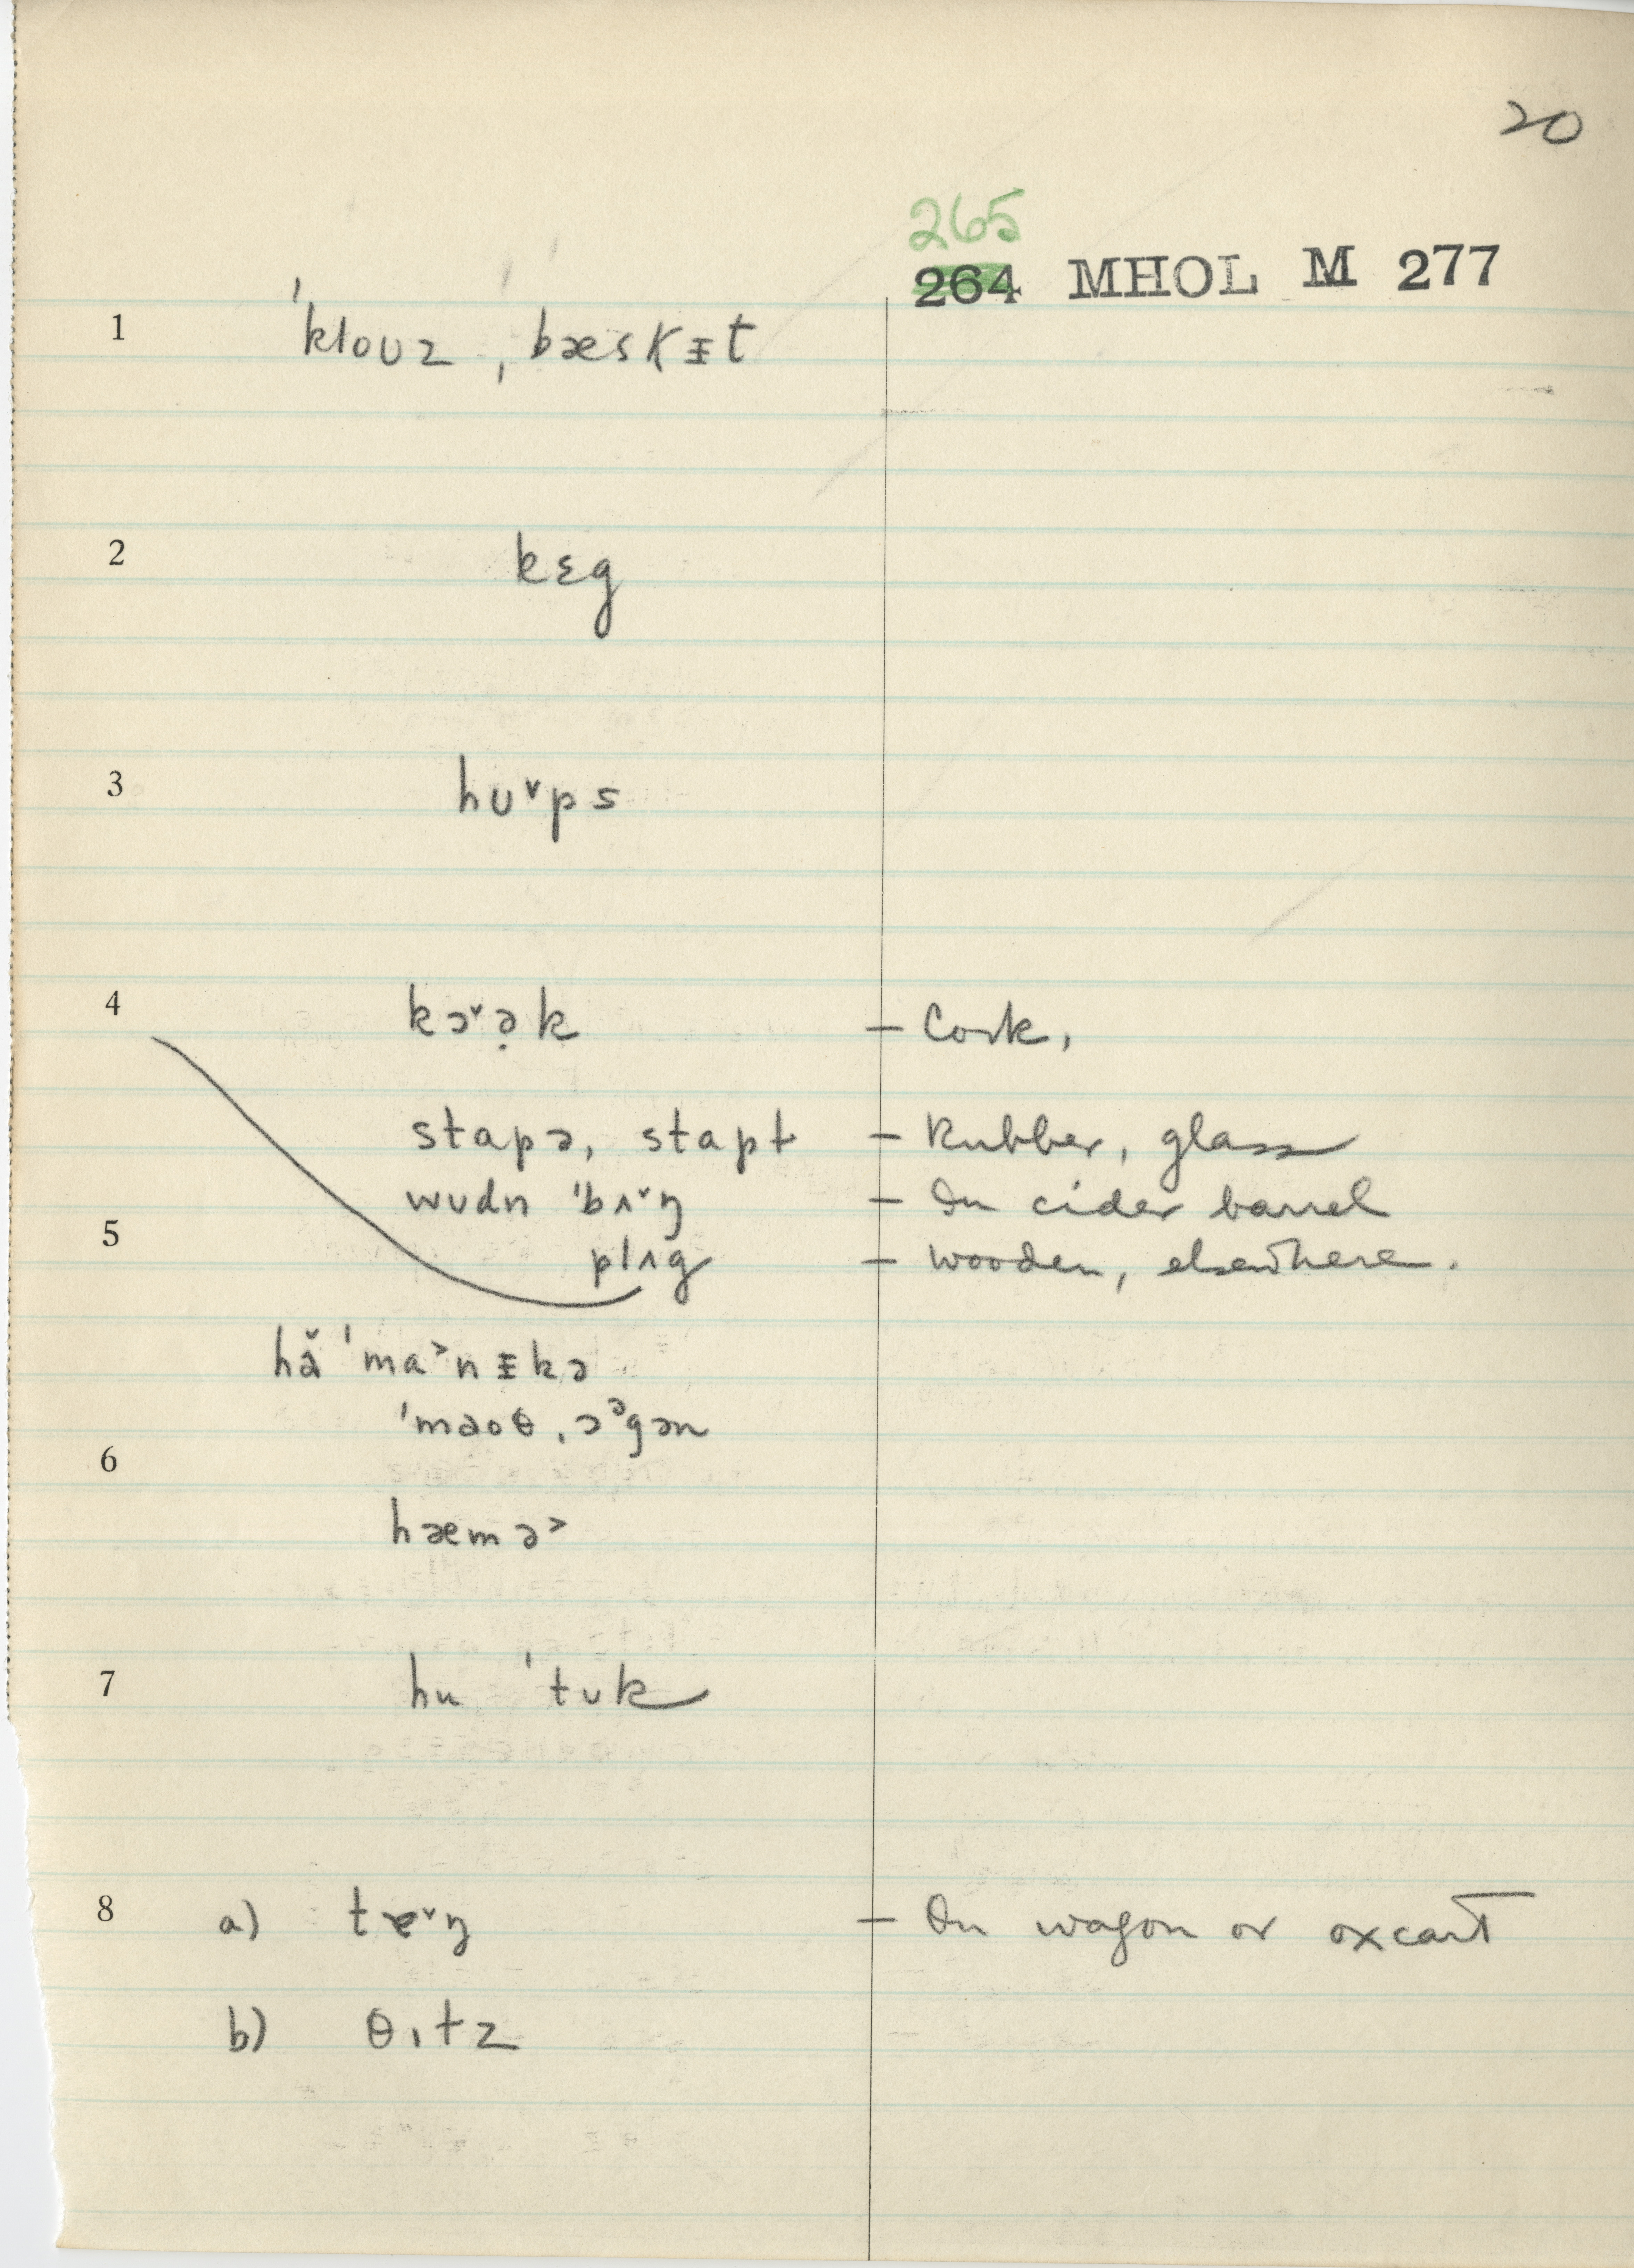 20
265
264 MHOL M 277
1 ˈkloʊz ˌbæskᵻt
2 kɛg
3 hʊ˅ps
4 kɔ˅ə̣k — Cork,
stapə, stapɫ — Rubber, glass
wʊdn ˈbʌ˅ŋ — In cider barrel
5 plʌg — wooden, elsewhere.
ˈma˃nᵻkə
ˈmaoθ ˌɔᵊgən
6
hæmə˃
7 hu ˈtʊk
8 a) tɐ˅ŋ — On wagon or oxcart
b) θɪtz